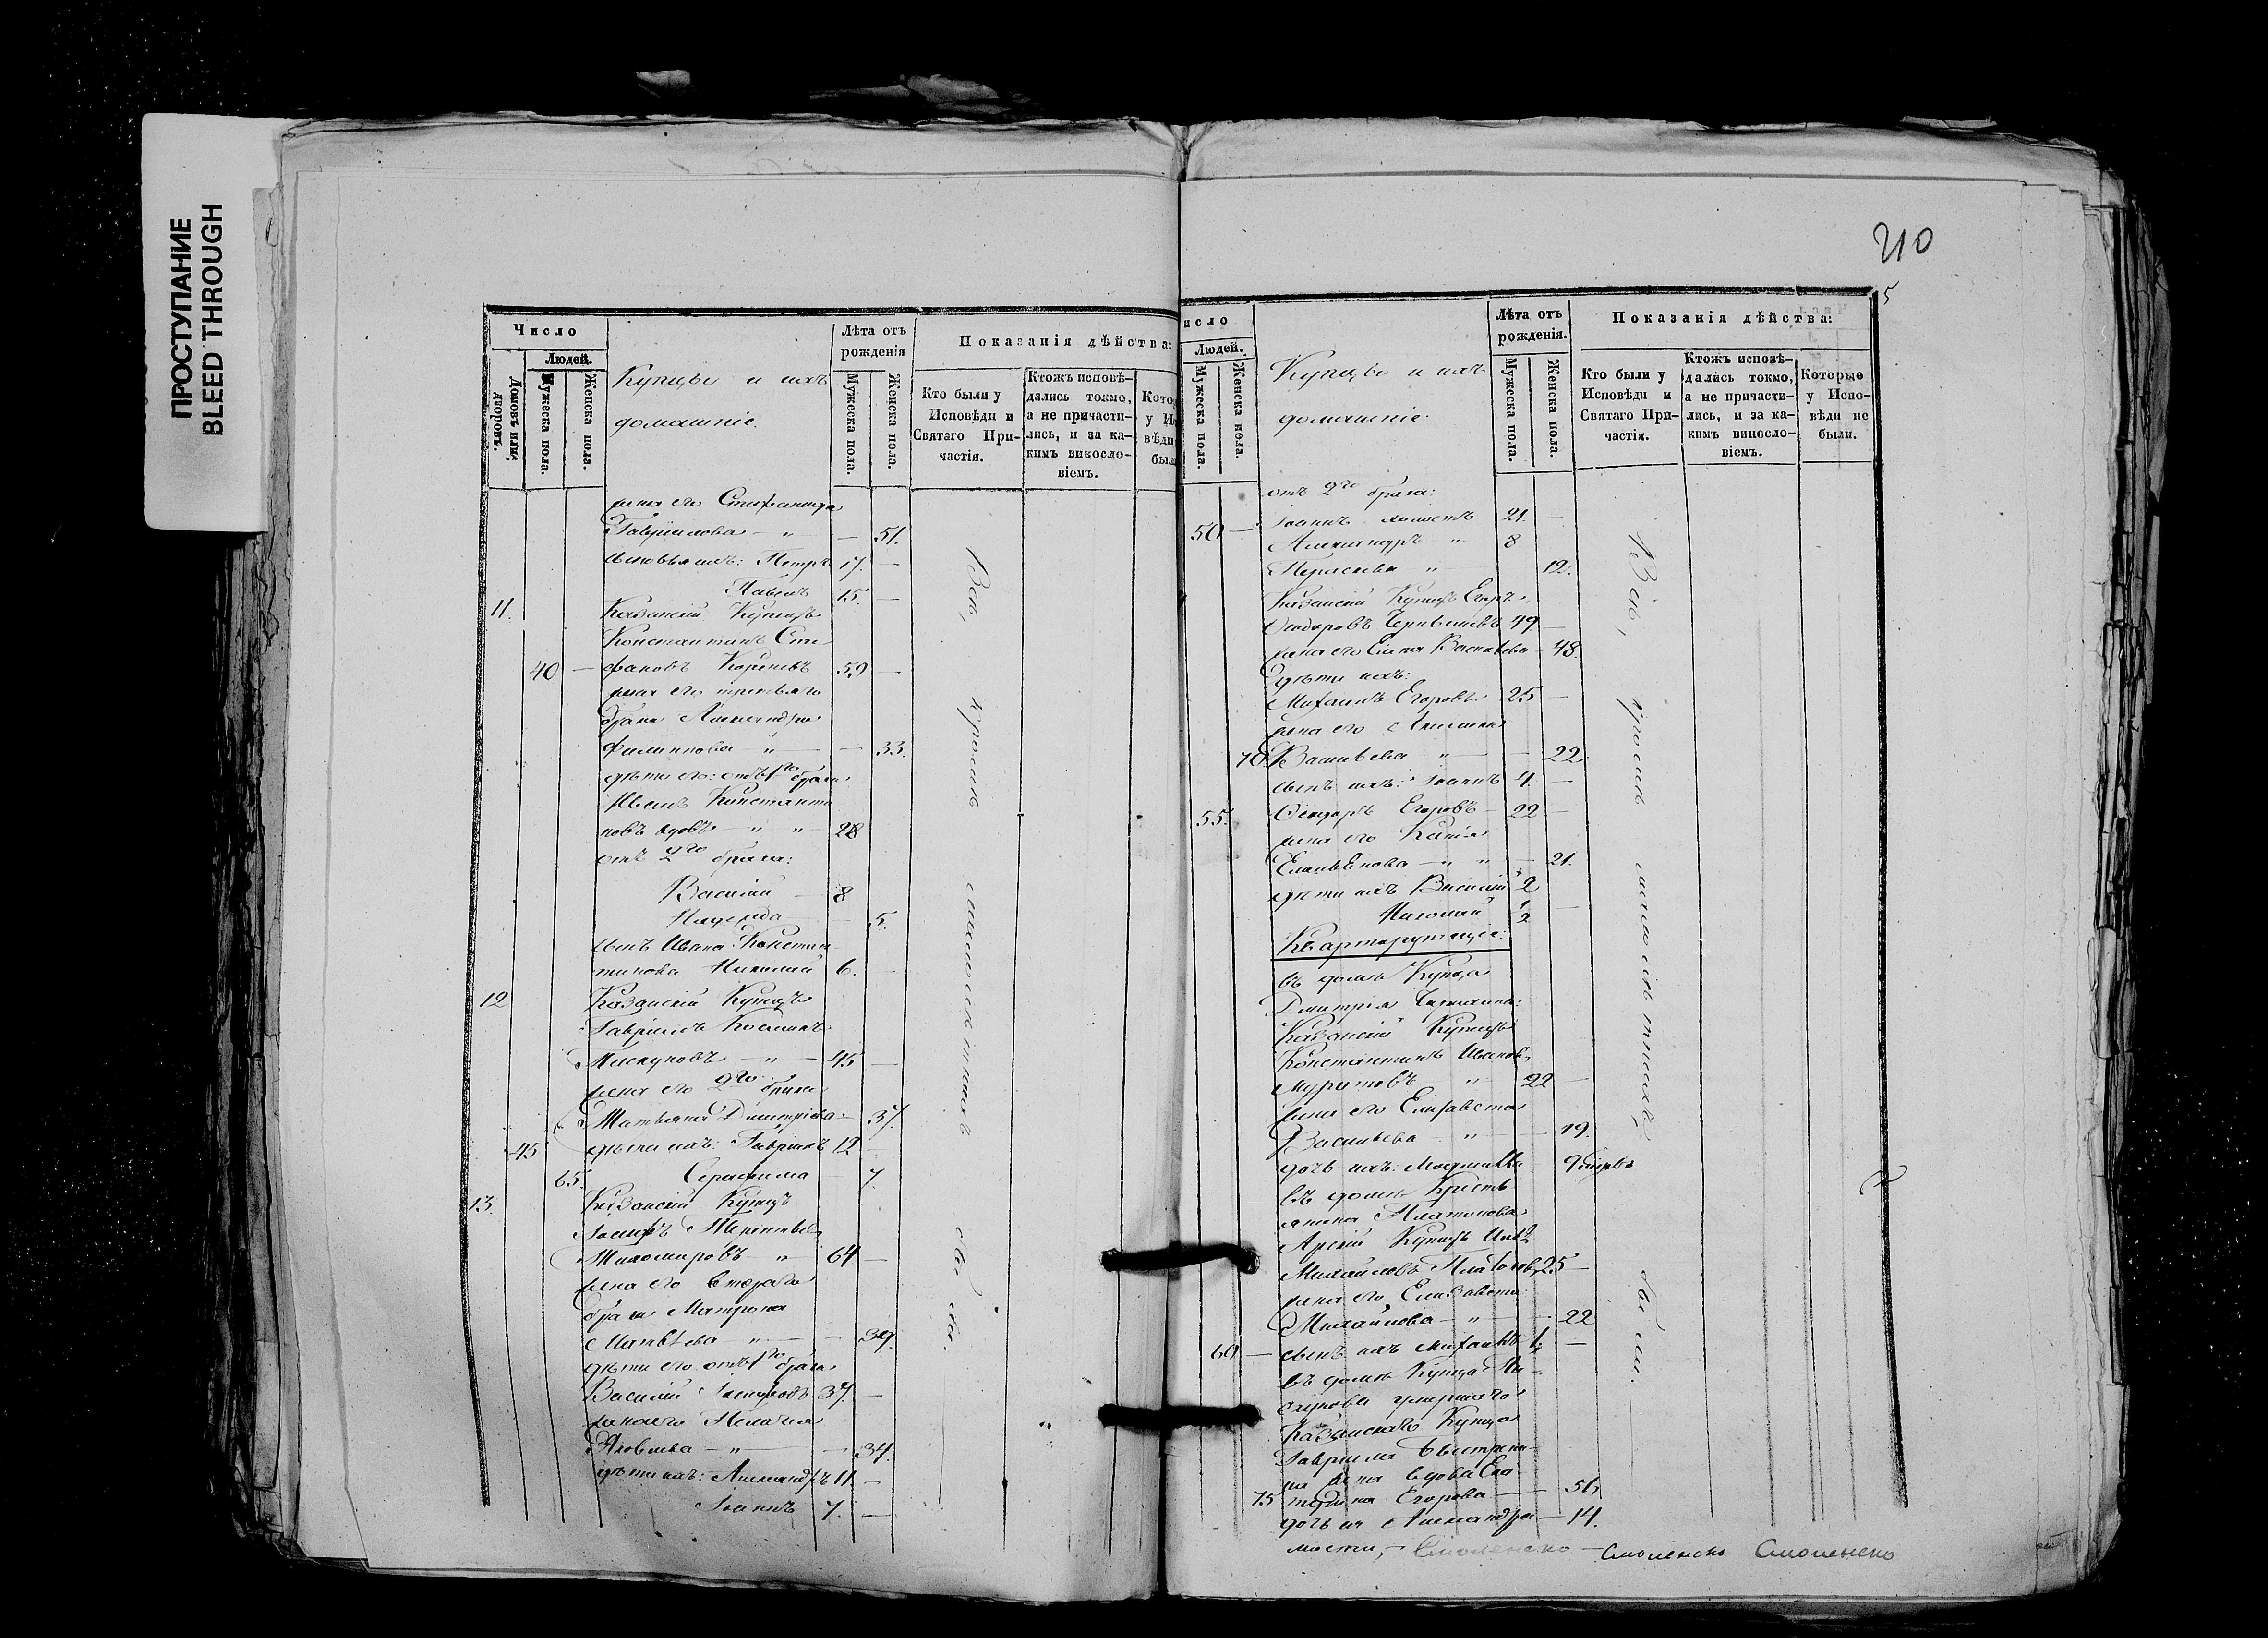 ПРОСТУПАНИЕ
BLEED THROUGH
210
5
Число
Людей.
Домовъ или дворовъ.
Мужеска пола.
Женска пола.
Купцы и ихъ
домашніе.
Лѣта отъ
рожденія
Мужеска пола.
Женска пола.
Показанія дѣйства:
Кто были у
Исповѣди и
Святаго При-
частія.
Ктожъ исповѣ-
дались токмо,
а не причасти-
лись, и за ка-
кимъ виносло-
віемъ.
Кото
у Ис
вѣди
был
жена его
Гаврилова — " — — 51.
сыновья ихъ: Петръ 17. —
Павелъ 15. —
11. Казанскій Купецъ
Константинъ Сте
40 — фановъ 59 —
жена его третьяго
брака Александра
Филиппова — " — — 33.
дѣти его: отъ 1го брака
Иванъ Константи
новъ вдовъ — " " — 28
отъ 2го брака:
Василій — 8
Надежда — — 5.
сынъ Ивана Констан
тинова Николай 6. —
12 Казанскій Купецъ
Гавріилъ Косминъ
Пискуновъ — " — 45 —
жена его 2го брака
Татьяна Дмитріева — 37.
45 дѣти ихъ: Гавріилъ 12 —
65. Серафима — 7.
13. Казанскій Купецъ
Іосифъ Терентьевъ
Тихомировъ " 64 —
жена его втораго
брака Матрона
Матвѣева — " — — 39.
дѣти его отъ 1го брака
Василій Іосифовъ 37. —
жена его Пелагія
Яковлева — " — — 34.
дѣти ихъ: Александръ 11. —
Іоаннъ 7. —
Всѣ,
кромѣ
малолѣтнихъ
исло
Людей.
Мужеска пола.
Женска пола.
Купцы и ихъ
домашніе:
Лѣта отъ
рожденія.
Мужеска пола.
Женска пола.
Показанія дѣйства:
Кто были у
Исповѣди и
Святаго При-
частія.
Ктожъ исповѣ-
дались токмо,
а не причасти-
лись, и за ка-
кимъ виносло-
віемъ.
Которые
у Испо-
вѣди не
были.
отъ 2го брака:
50 — Іоаннъ холостъ 21. —
Александръ " 8
Параскева " 12.
Казанскій Купецъ Егоръ
Ѳедоровъ 49 —
жена его Елена Васильева — 48.
Дѣти ихъ:
Михаилъ Егоровъ 25 —
жена его Акилина
70. Васильева " — — 22.
сынъ ихъ: Іоаннъ 4. —
55. Ѳедоръ Егоровъ — 22 —
жена его
— " " — 21.
дѣти ихъ Василій 2
Николай ½ —
Квартирующіе:
въ домѣ Купца
Дмитрія
Казанскій Купецъ
Константинъ Ивановъ
Муратовъ " 22 —
жена его Елизавета
Васильева — " — — 19.
дочь ихъ:
въ домѣ Кресть
янина Платонова
Арскій Купецъ
Михайловъ Платоновъ 25 —
жена его Елизавета
Михайлова — " — — 22
60 — сынъ ихъ Михаилъ —
въ домѣ Купца Пи
скунова умершаго
Казанскаго Купца
Гавріила
на жена вдова Ека
75 терина Егорова — — 56,
дочь ея Александра — 14.
Всѣ,
кромѣ
малолѣтнихъ,
были.
Смоленско Смоленско Смоленско